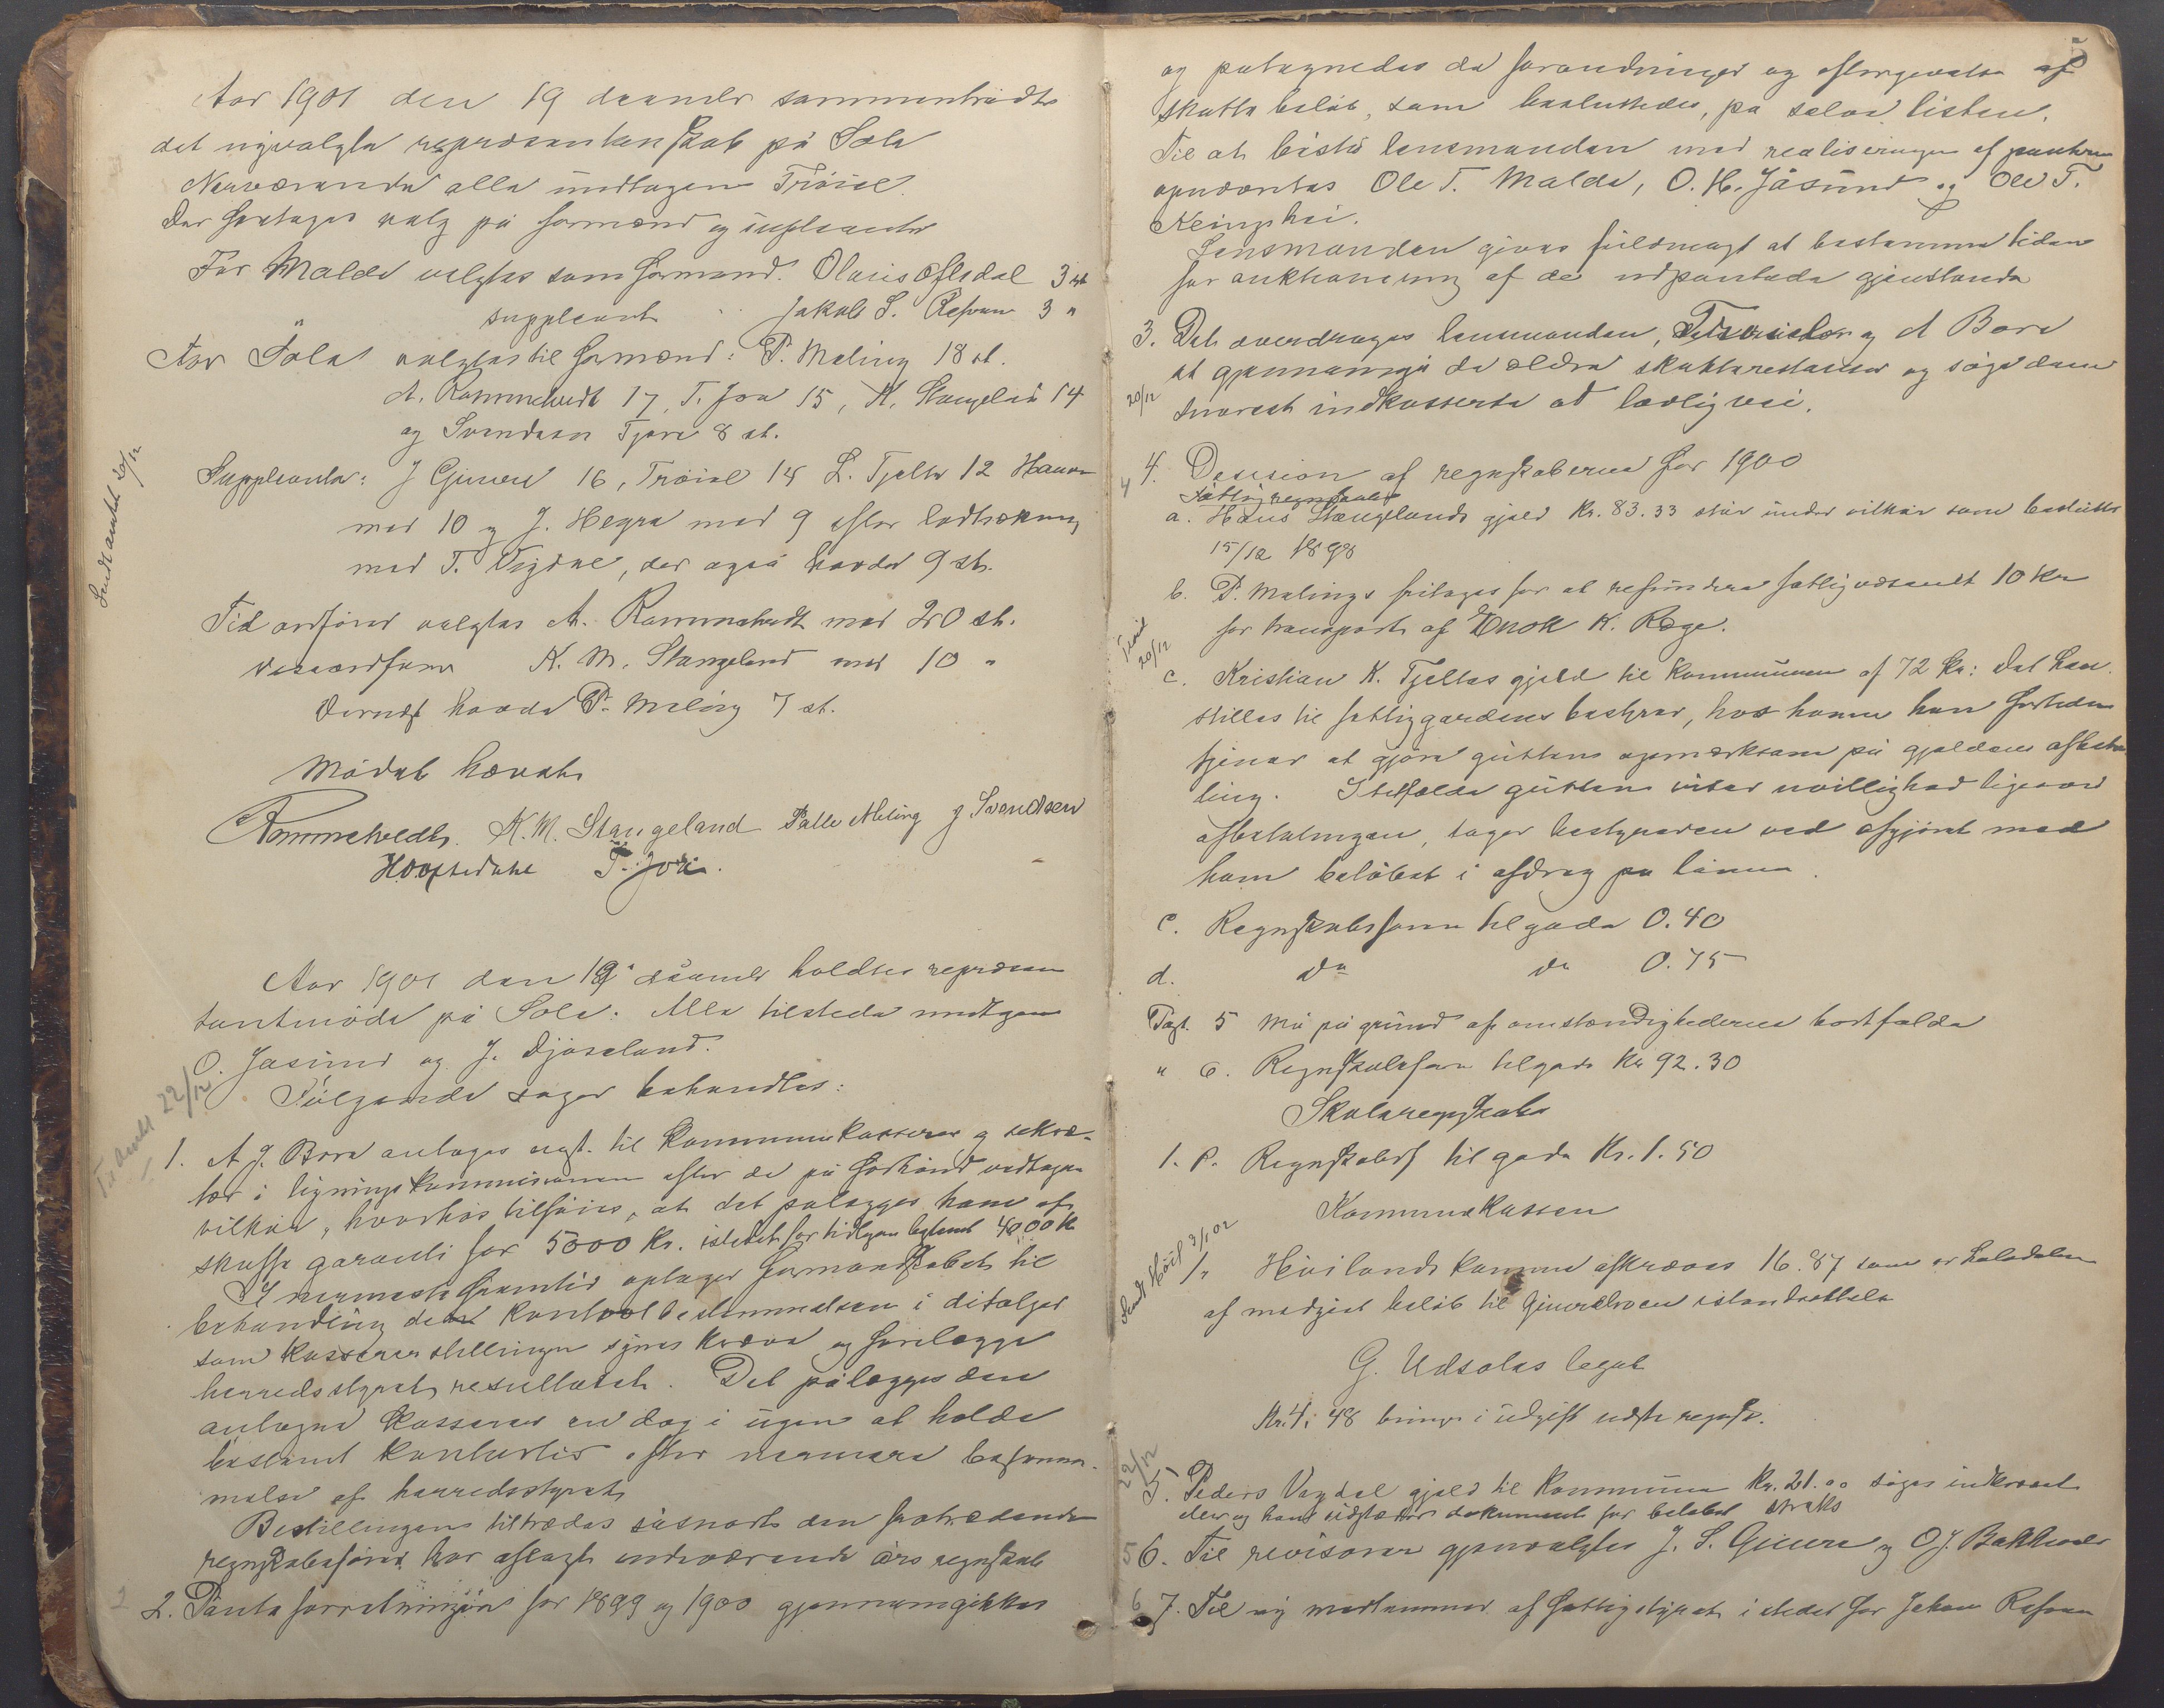 Aar 1901 den 19 december sammentraadte
det nyvalgte repræsentanskab på Sola
Nærværende alle undtagen Tröiel.
Der foretoges valg på formænd og supleanter
For Malde valgtes som formand. Olaus Oftedal 3 st
suppleant Jakob S. Ræfven 3 "
For Sola valgtes til formænd: P. Meling 18 st.
A. Rommetvedt 17, T. Joa 15, K. Stangeland 14
og Svendsen Tjora 8 st.
Suppleanter: J Gimre 16, Tröiel 14 L. Tjelta 12 Haaven
med 10 og J. Hegre med 9 efter lodtrækning
med T. Vigdel, der også havde 9 st.
Til ordförer valgtes A. Rommetvedt med 20 st.
viseordförer K. M. Stangeland med 10 "
Dernæst havde P. Meling 7 st.
Mödet hævet
ARommetvedt. K. M. Stangeland Palle Meling J Svendsen
HOOftedahl T. Joa.
Indkantet 20/12
Aar 1901 den 19 december holdtes repræsen
tantmöde på Sola. Alle tilstede undtagen
O. Jasund og J. Djöseland.
Fölgende sager behandles:
22/12
1. A J. Bore antages enst. til kommunekasserer og sekre-
tær i ligningskommisionen efter de på forhånd vedtagne
vilkår, hvorhos tilföies, at det pålægges ham at
skaffe garanti for 5000 Kr. istedet for tidligere bestemt 4000 Kr
I nærmeste fremtid optager formandskabet til
behandling de kontrolbestemmelser i ditfælger
som kassererstillingen synes kræve og forelægge
herredsstyret resultatet. Det pålægges den
antagne kasserer en dag i ugen at holde
bestemt kontortid efter nærmere bestem-
melse af herredsstyret
Bestillingen tiltrædes såsnart den fratrædende
regnskabsförer har aflagt indeværende års regnskab
2. Panteforretningen for 1899 og 1900 gjennemgikkes
5
og påtegnedes de forandringer og eftergivelse af
skatte belöb, som besluttedes, på selve listen.
Til at bistå lensmanden med realiseringen af panterne
opnævntes Ole T. Malde, O. H. Jåsund og Ole T.
Kleingshei.
Lensmanden gives fuldmagt at bestemme tiden
for auktionering af de udpantede gjenstande
3. Det overdrages lensmanden, og A Bore
at gjennemgå de ældre skatterestanser og söge dem
20/12
snarest indkasserte ad lovlig vei.
4 4. Desision af regnskaberne for 1900
Fattigregnskabet
a. Hans Stangelands gjæld Kr. 83.33 står under vilkår som besluttet
15/12 1898
b. P. Melings fritages for at refundere fattigvæsenet 10 Kr
for transport af Enok K. Rege.
20/12
c. Kristian K. Tjeltas gjæld til kommunen af 72 kr: Det hen
stilles til fattiggardens bestyrer, hos hvem han fortiden
tjener at gjöre gutten opmærksom på gjældens afbeta
ling. I tilfælde gutten viser uvillighed ligeoverfor
afbetalingen, tager bestyreren ved afgjöret med
ham belöbet i afdrag på lönnen.
c. Regnskabsförer tilgode 0.40
d. do do 0.75
Post. 5 må på grund af omstændighederne bortfalde
" 6. Regnskabsförer tilgode Kr 92.30
Skoleregnskabet
1. P. Regnskabsf tilgode Kr. 1.50
Kommunekassen
Sendt Höil 3/1 02
1. Höilands kommune afkræves 16.87 som er halvdelen
af medgået belöb til Gimrebroens istandsettelse
G. Udsolas legat
Kr. 4,48 bringes i udgift næste regnsk.
22/12
5. Peders Vigdel gjæld til kommunen Kr. 21.00 söges indkrævet
eller og hans udstæder dokument for belöbet straks
5 6. Til revisorer gjenvalgtes J. S. Gimre og O J. Bakkevold
6 7. Til ny medlemmer af fattigstyret i stedet for Johan Ræfven